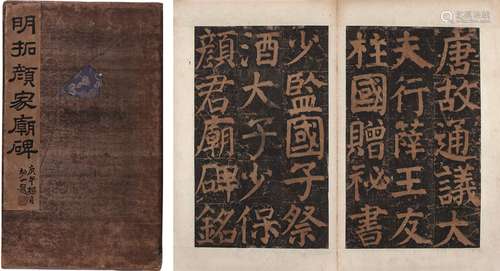 明拓顏家廟碑
唐故通議大
夫行薛王友
柱國贈祕書
少監國子祭
酒太子少保
顏君廟碑銘